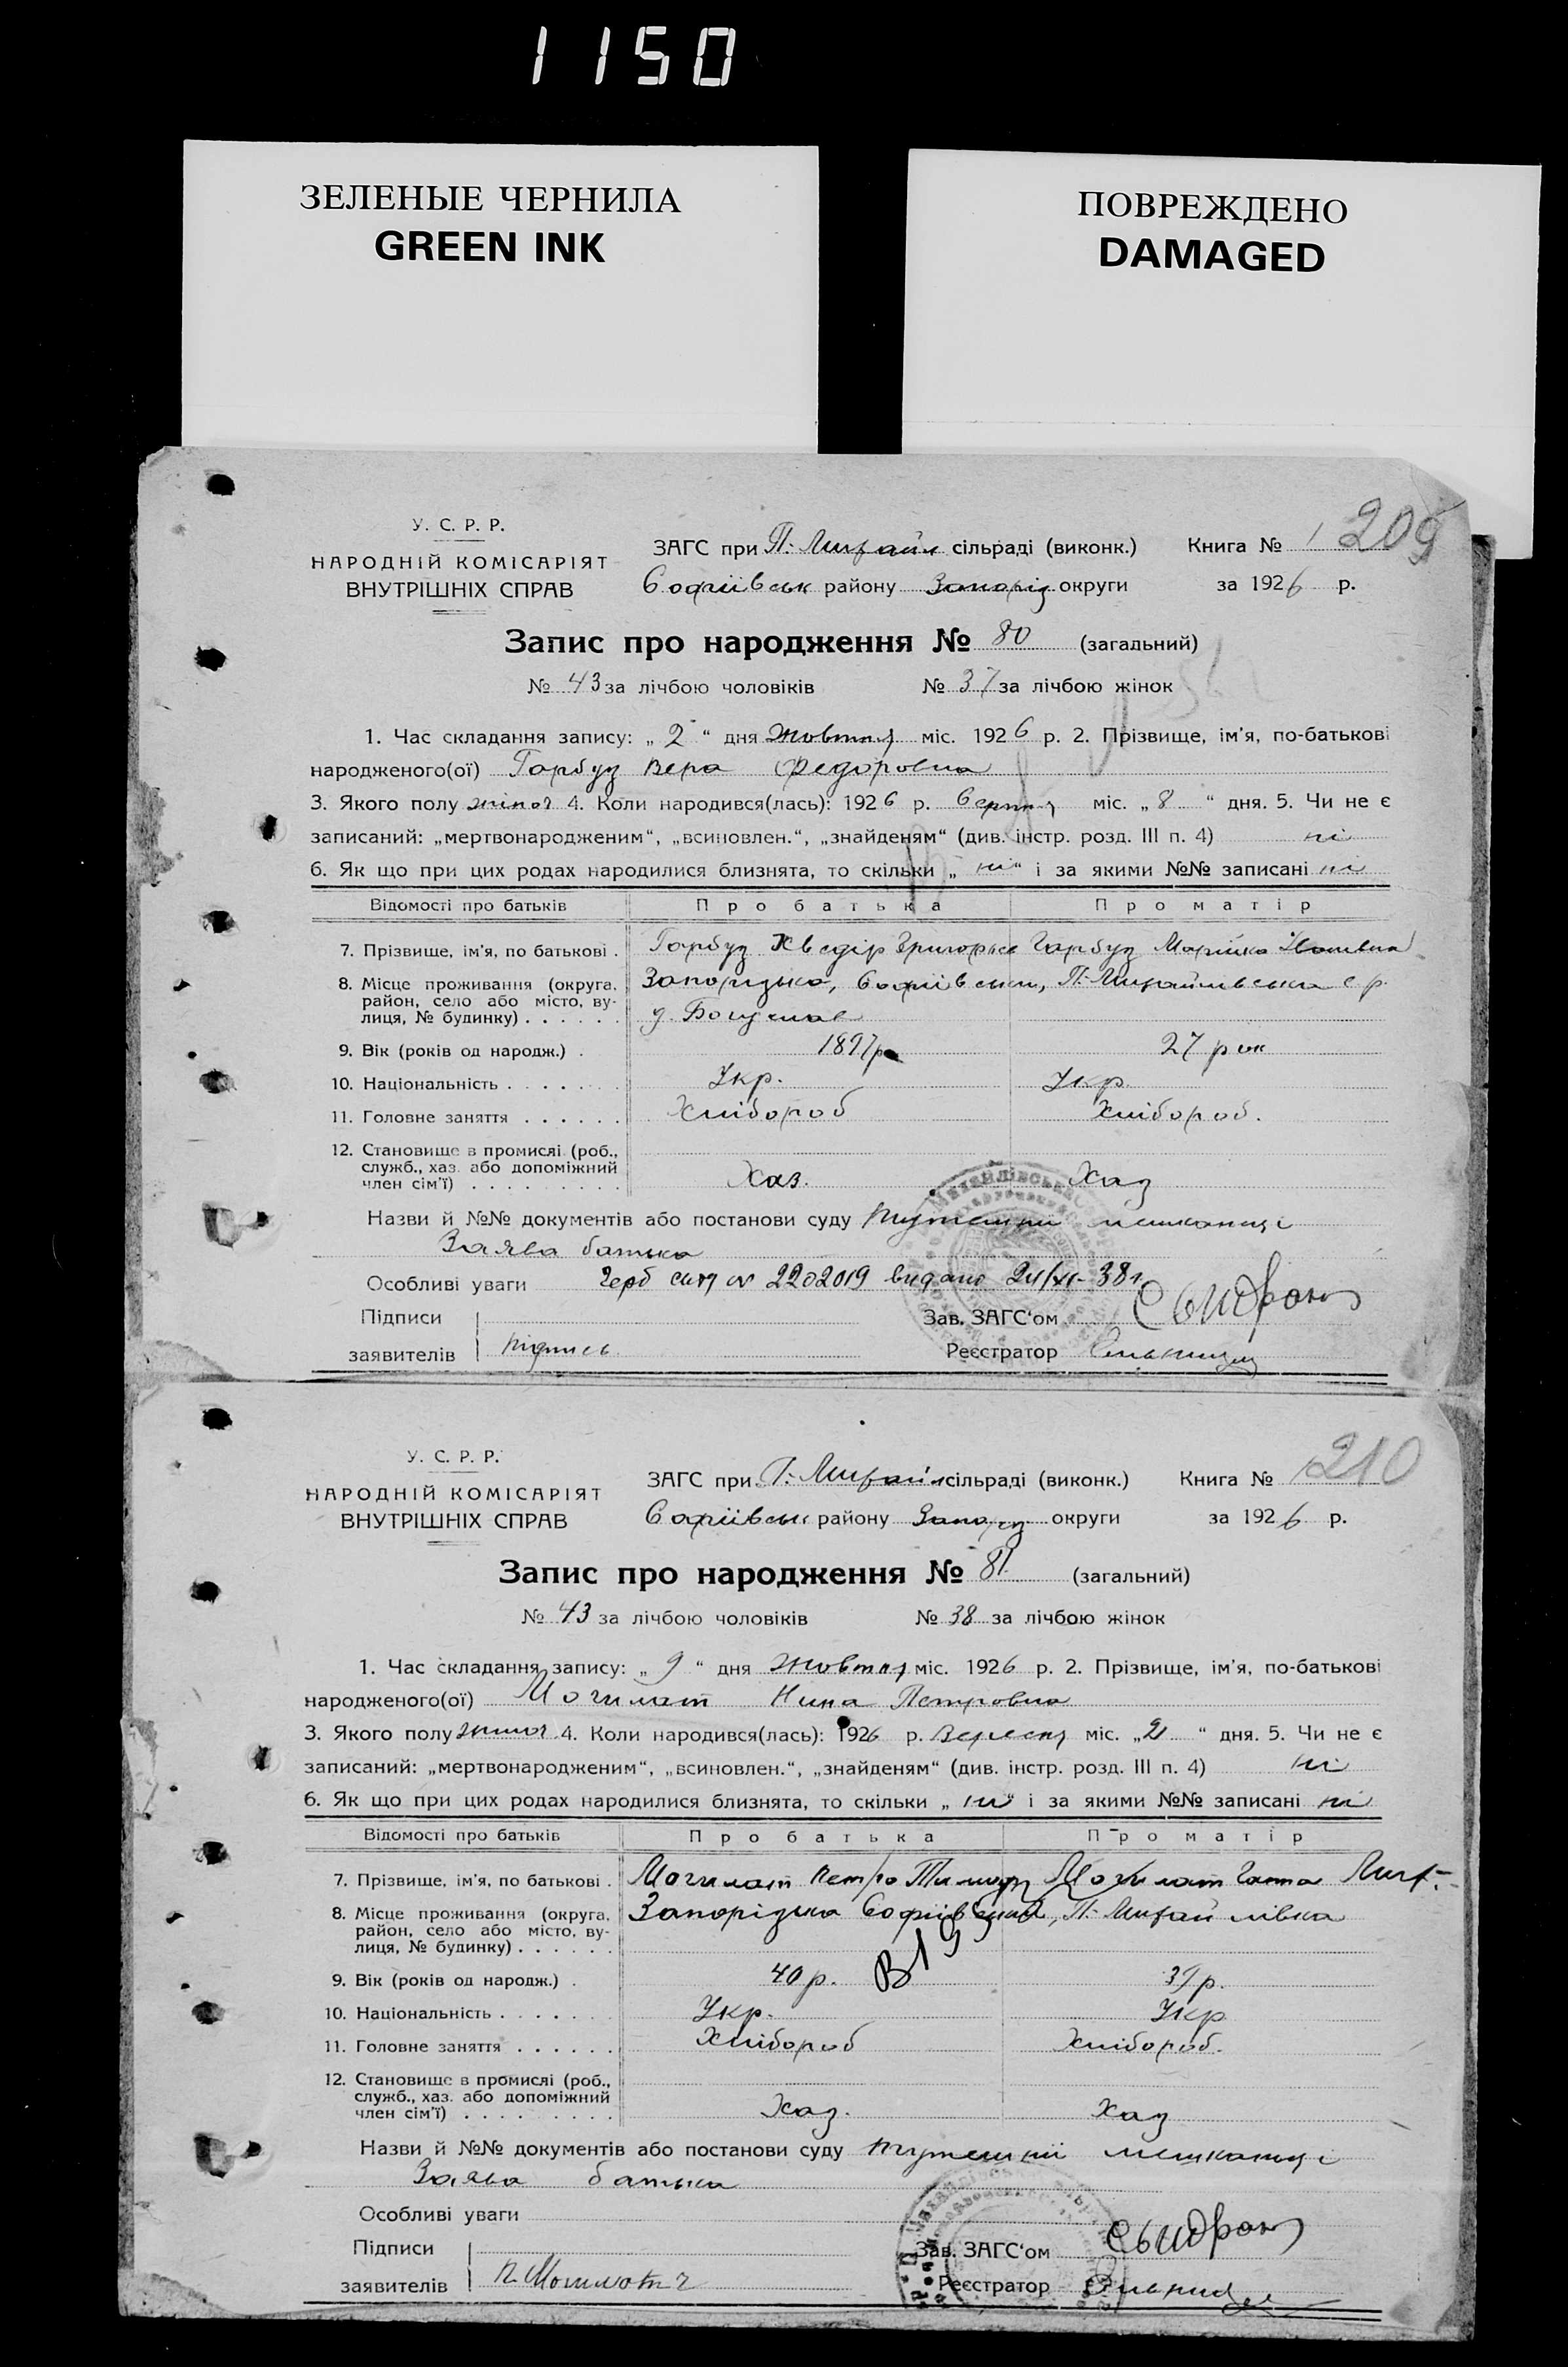 1150
ЗЕЛЕНЫЕ ЧЕРНИЛА
GREEN INK
ПОВРЕЖДЕНО
DAMAGED
209
У. С. Р. Р.
НАРОДНІЙ КОМІСАРІЯТ
ВНУТРІШНІХ СПРАВ
ЗАГС при П.-Михайл сільраді (виконк.) Книга № 1
Софіївськ району Запоріз округи за 1926 р.
Запис про народження № 80 (загальний)
№ 43 за лічбою чоловіків № 37 за лічбою жінок
1. Час складання запису: „ 2 “ дня жовтня міс. 1926 р. 2. Прізвище, ім'я, по-батькові
народженого(ої) Гарбуз Вера Федоровна
3. Якого полу жіноч 4. Коли народився(лась): 1926 р. Серпня міс. „ 8 “ дня. 5. Чи не є
записаний: „мертвонародженим“, „всиновлен.“, „знайденям“ (див. інстр. розд. III п. 4) ні
6. Як що при цих родах народилися близнята, то скільки „ ні “ і за якими №№ записані ні
Відомості про батьків Про батька Про матір
7. Прізвище, ім'я, по батькові . Гарбуз Хведір Григорьев Гарбуз Марійка Іванівна
8. Місце проживання (округа, район, село або місто, вулиця, № будинку) . . . . . . Запорізька, Софіївськи, П.-Михайлівська с р.
9. Вік (років од народж.) . 1897р 27 рок
10. Національність . . . . . . . Укр. Укр.
11. Головне заняття . . . . . . Хлібороб Хлібороб.
12. Становище в промислі (роб., служб., хаз. або допоміжний член сім'ї) . . . . . . . . . Хаз. Хаз
Назви й №№ документів або постанови суду тутешні мешканці
Заява батька
Особливі уваги Герб 2202019 видано 38
Підписи Зав. ЗАГС'ом
заявителів підпись Реєстратор
210
У. С. Р. Р.
НАРОДНІЙ КОМІСАРІЯТ
ВНУТРІШНІХ СПРАВ
ЗАГС при П.-Михайл сільраді (виконк.) Книга № 1
Софіївськ району Запоріз округи за 1926 р.
Запис про народження № 81 (загальний)
№ 43 за лічбою чоловіків № 38 за лічбою жінок
1. Час складання запису: „ 9 “ дня жовтня міс. 1926 р. 2. Прізвище, ім'я, по-батькові
народженого(ої) Могилат Нина Петровна
3. Якого полу жіноч 4. Коли народився(лась): 1926 р. Вересня міс. „ “ дня. 5. Чи не є
записаний: „мертвонародженим“, „всиновлен.“, „знайденям“ (див. інстр. розд. III п. 4) ні
6. Як що при цих родах народилися близнята, то скільки „ ні “ і за якими №№ записані ні
Відомості про батьків Про батька Про матір
7. Прізвище, ім'я, по батькові . Могилат Петро Тимоф Могилат Ганна Мих.
8. Місце проживання (округа, район, село або місто, вулиця, № будинку) . . . . . . Запорізька Софіївська, П.-Михайлівка
9. Вік (років од народж.) . 40 р. р.
10. Національність . . . . . . . Укр. Укр
11. Головне заняття . . . . . . Хлібороб Хлібороб.
12. Становище в промислі (роб., служб., хаз. або допоміжний член сім'ї) . . . . . . . . . Хаз. Хаз
Назви й №№ документів або постанови суду тутешні мешканці
Заява батька
Особливі уваги
Підписи Зав. ЗАГС'ом
заявителів Реєстратор